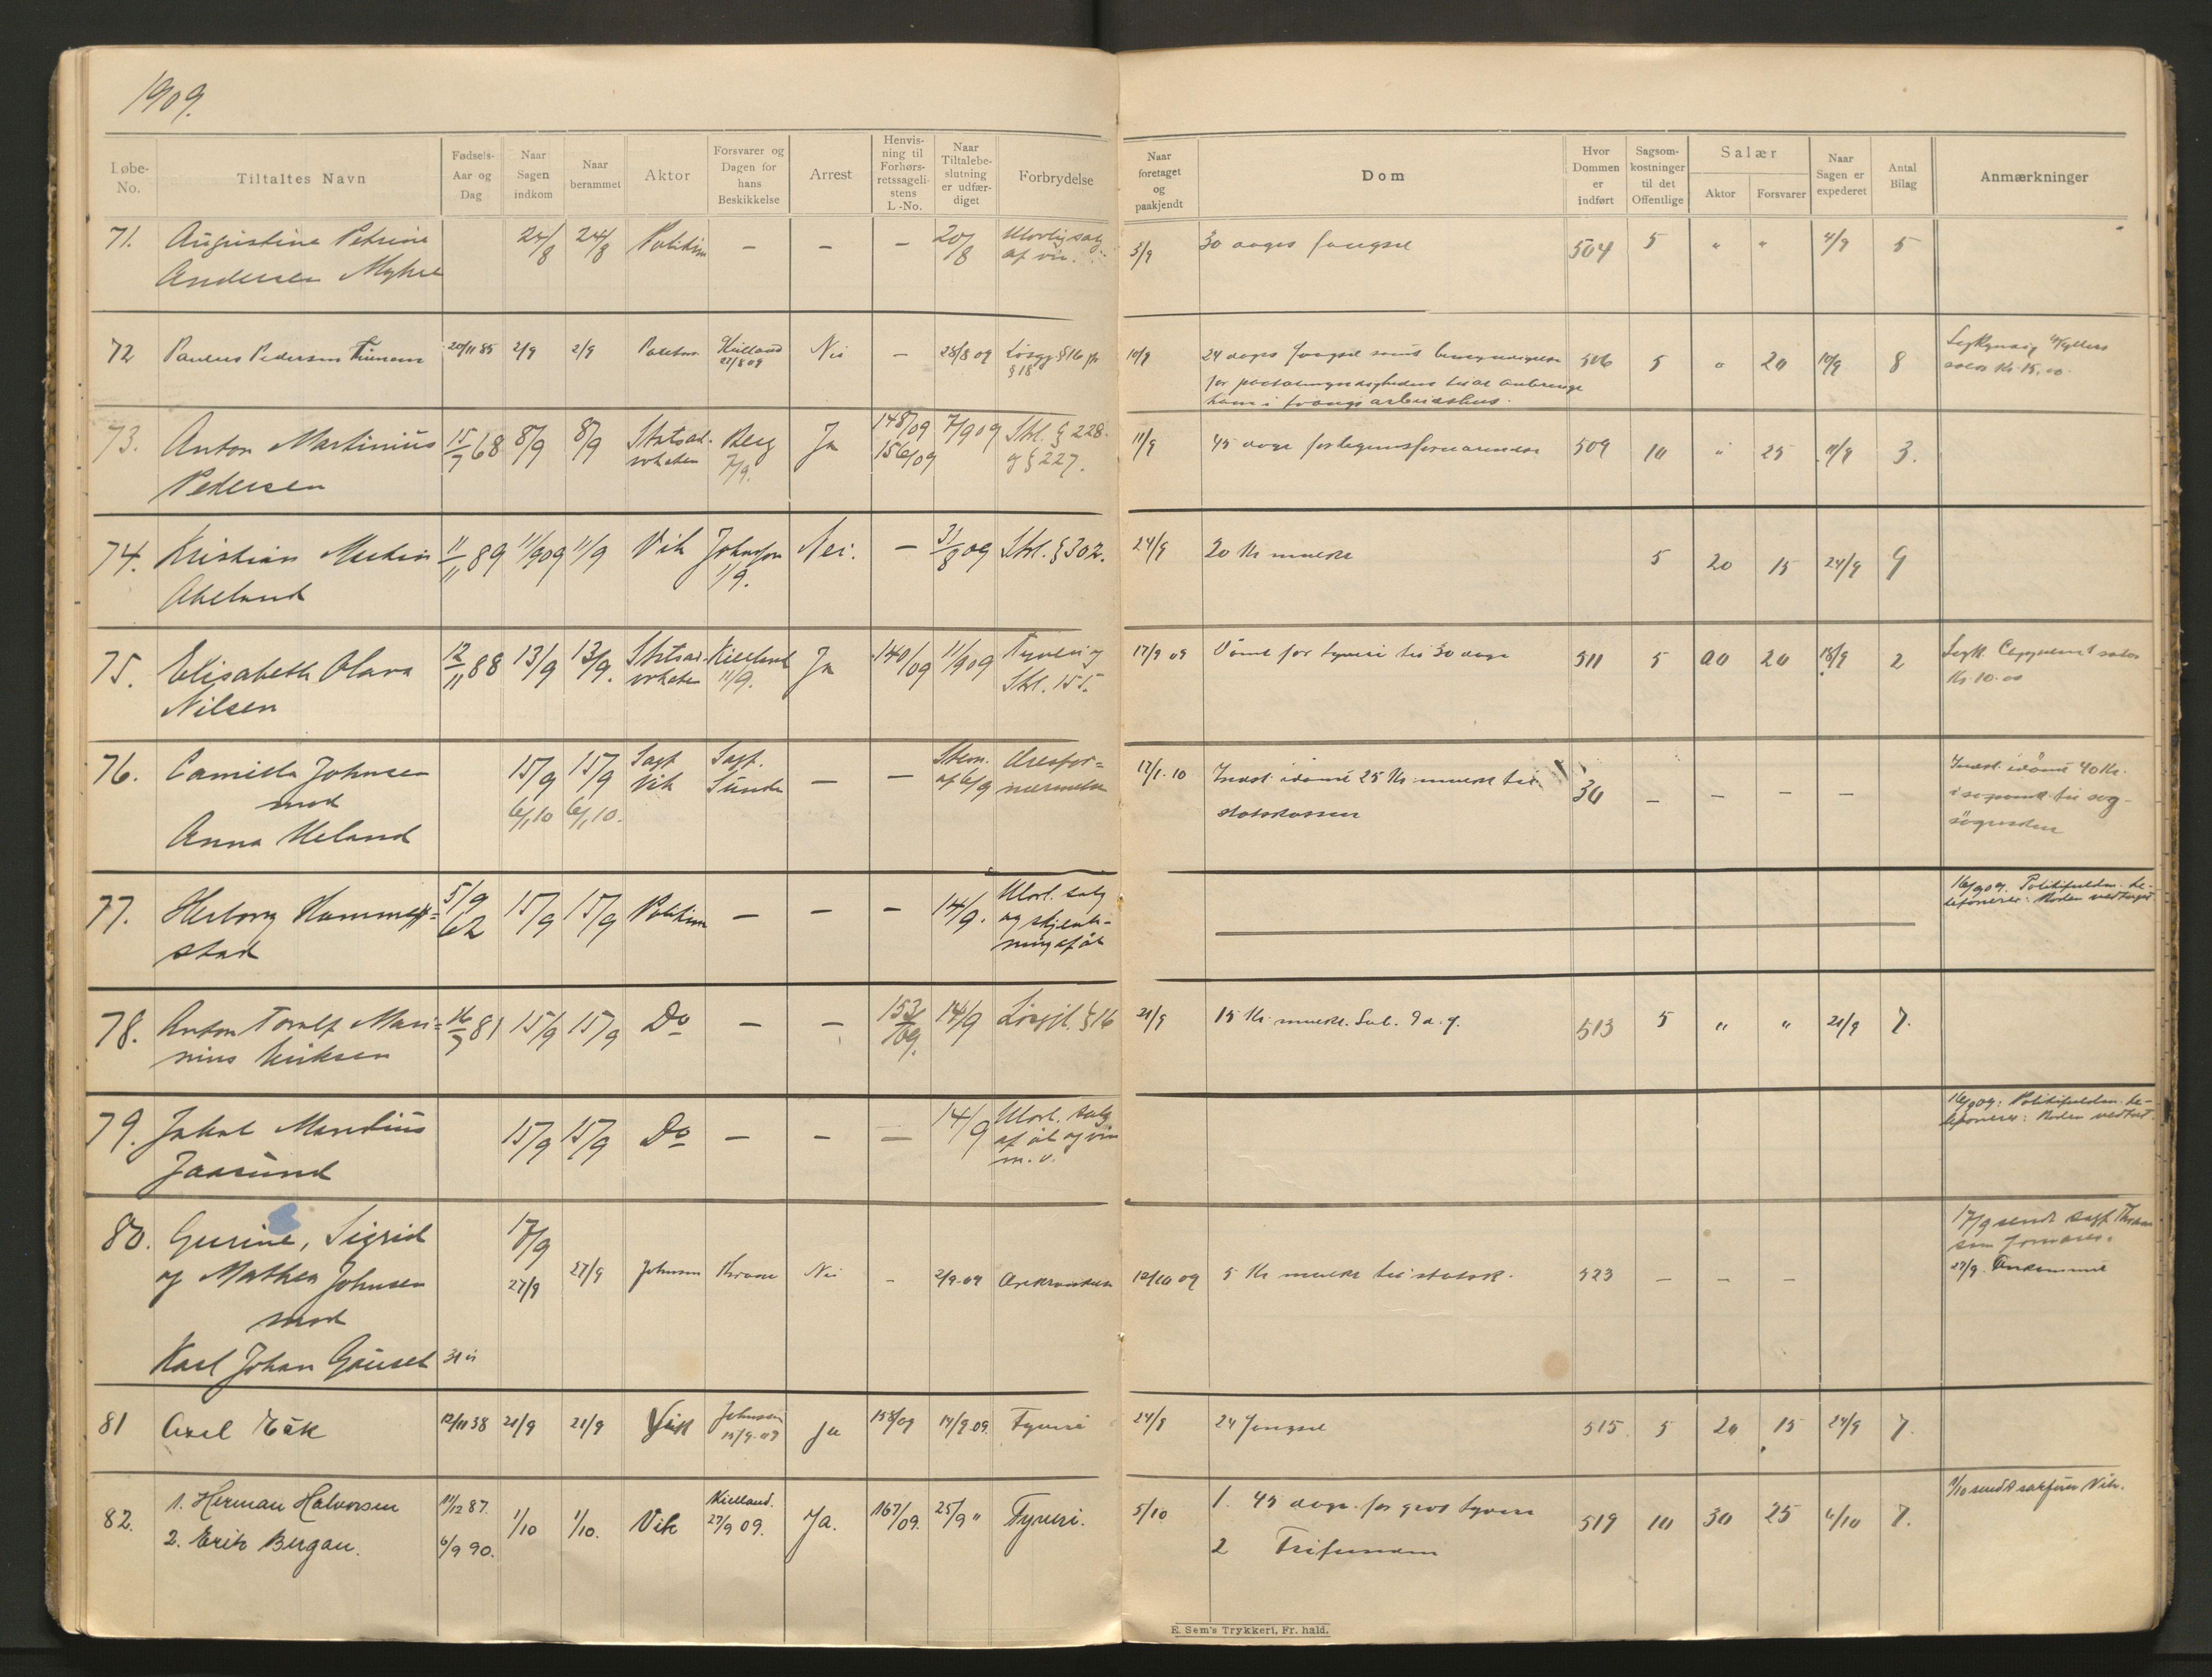 1909.
Løbe-No. Tiltaltes Navn Fødsels-Aar og Dag Naar Sagen indkom Naar berammet Aktor Forsvarer og Dagen for hans Beskikkelse Arrest Henvisning til Forhørsretssagelistens L-No. Naar Tiltalebeslutning er udfærdiget Forbrydelse Naar foretaget og paakjendt Dom Hvor Dommen er indført Sagsomkostninger til det Offentlige Salær Aktor Forsvarer Naar Sagen er expederet Antal Bilag Anmærkninger
71. Augustine Petrine 24/8 24/8 Politim – – – 20/8 Ulovlig salg 5/9 30 dages fængsel 504 5 " " 4/9 5
Andersen Myhre af vin.
72 Paulus Pedersen 20/11 85 2/9 2/9 Kielland 27/8 09 Nei – 28/8 09 Løsgj. § 16 jfr § 18 10/9 24 dages fængsel samt bemyndigelse 506 5 " 20 10/9 8
for paatalemyndigheden til at anbringe
ham i tvangsarbeidshus. Kr. 15.00
73. Anton Martinius 15/7 68 8/9 8/9 Statsad- Berg Ja 148/09 7/9 09 Strl. § 228 11/9 45 dage 509 10 " 25 11/9 3.
Pedersen vokaten 7/9. 156/09 og § 227.
74. Kristian Martin 11/11 89 11/9 09 11/9 Vik Johnsen 1/9. Nei. – 31/8 09 Strl. § 302. 24/9 20 Kr mulkt 5 20 15 24/9 9
75. Elisabeth Olava 12/11 88 13/9 13/9. Statsad- Kielland Ja 140/09 11/9 09 Tyveri og 17/9 09 Dømt for tyveri til 30 dage 511 5 20 20 18/9 2
Nilsen vokaten 11/9. Strl. 155. Kr. 10.00
76. Camilla Johnsen 15/9 15/9 Sagf. Sagf. – – Stevn. Æresfor= 17/1. 10 Indst. idømt 25 Kr mulkt til 30 – – – – – Indst. idømt 40 Kr.
mod 6/1 10 6/1 10. Vik Sunde af 6/9 nærmelse statskassen
Anna Meland
77. Herborg Hammer= 5/9 62 15/9 15/9 Politim – – – 14/9. Ulovl. salg 16/9 09. Politifuldm. te-
stad og skjenk- lefonerer: Noden vedtaget
ning af øl
78. Anton Toralf Mari= 16/3 81 15/9 15/9 Do – – 153/09. 14/9 Løsgjl. § 16 21/9 15 Kr. mulkt. Sub. 9 d. f. 513 5 " " 21/9 7.
nius Eriksen
79. Jakob Mandius 15/9 15/9 Do – – – 14/9 Ulovl. salg 16/9 09: Politifuldm. te-
Jaasund af øl og vin lefonerer: Noden vedtat.
m. v.
80. Gurine, Sigrid 17/9 17/9 sendt sagf.
og Mathea Johnsen 27/9 27/9 Johnsen Nei – 2/9 09 12/10 09 5 Kr mulkt til statsk. 523 – – – 27/9. Ankommet
mod
Karl Johan Gausel 31 år
81 Axel 12/11 38 21/9 21/9 Vik Johnsen 15/9 09 Ja 158/09 14/9 09. Tyveri 24/9 24 fængsel 515 5 20 15 24/9 7.
82. 1. Herman Halvorsen 11/12 87. 1/10 1/10. Vik Kielland. 27/9 09. Ja. 167/09. 25/9 " Tyveri. 5/10 1. 45 dage for grov tyveri 519 10 30 25 6/10 7. 1/10 sendt sakfører Vik.
2. Erik Bergan. 6/9 90. 2 Frifunden
E. Sem's Trykkeri, Fr. hald.